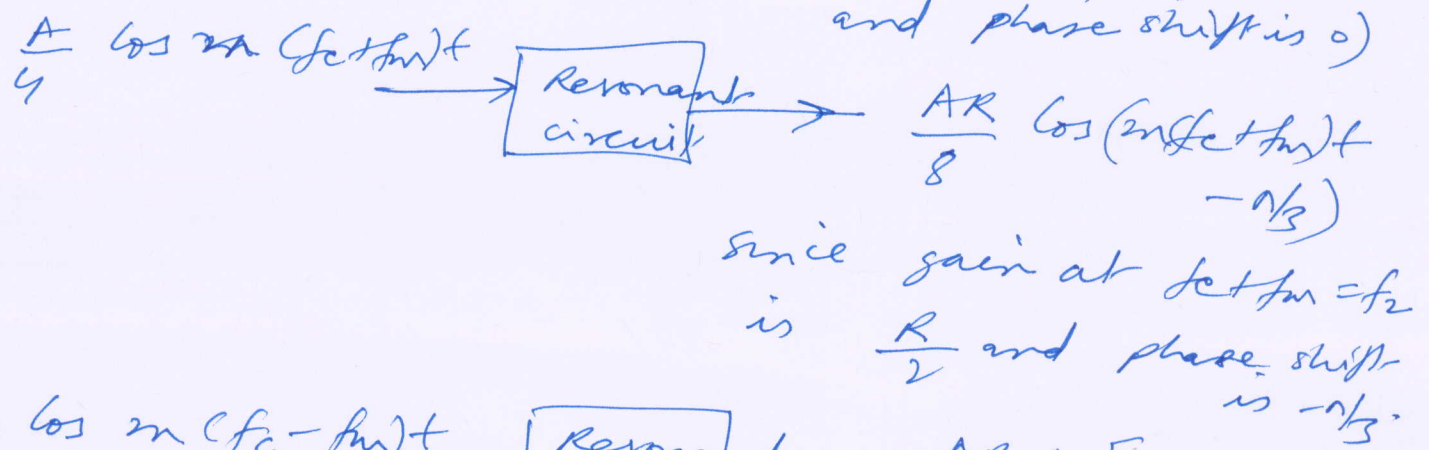 and phase shift is 0)
A/4 cos 2π (fc+fm)t
Resonant
circuit
AR/8 cos(2π(fc+fm)t
-π/3)
since gain at fc+fm = f2
is R/2 and phase shift
is -π/3.
cos 2π (fc-fm)t